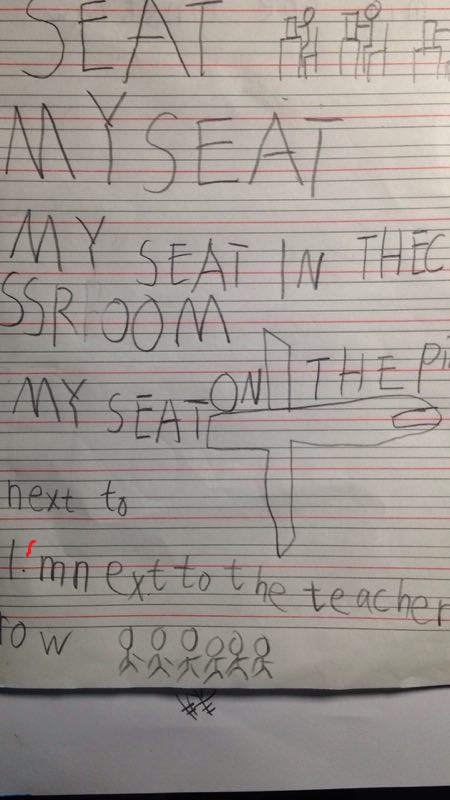 SEAT
MY SEAT
MY SEAT IN THEC
SSROOM
MY SEAT ON THE Pi
next to
I'm next to the teacher
row